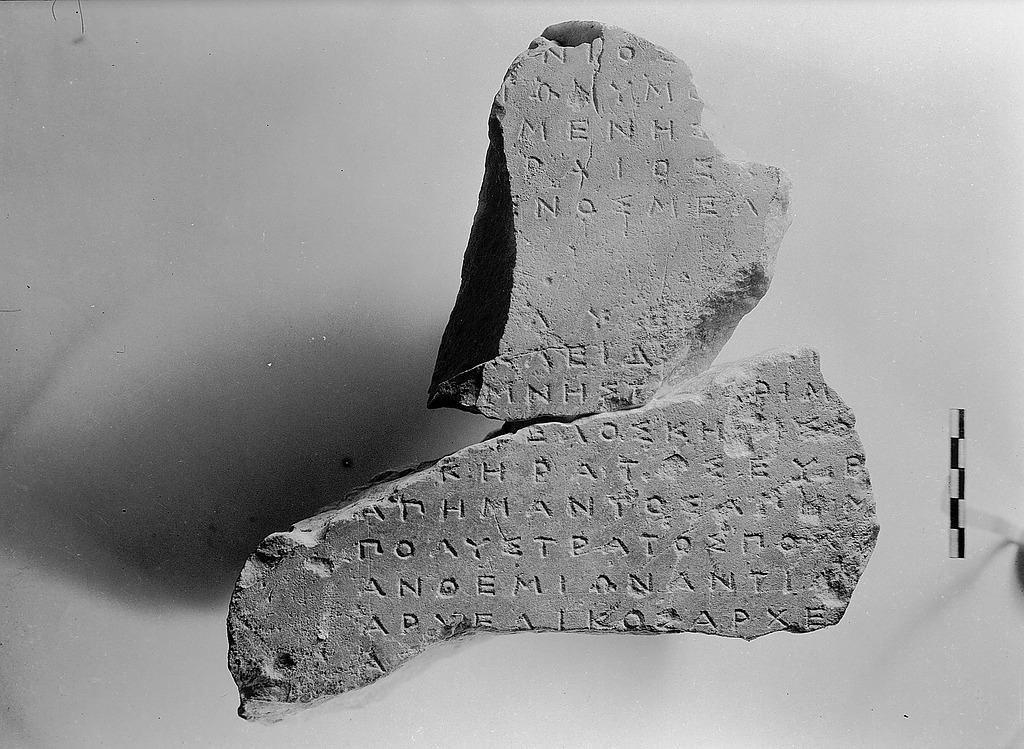 ΝΙΟΣ
ΙΩΝΥΜ
ΜΕΝΗΣ
ΡΑΙΟΣ
ΕΝΟΣΜΕΛ
ΛΥ
ΛΕΙΔ
ΜΝΗΣ ΡΙΜ
ΕΛΟΣΚΗ
ΚΗΡΑΤΟΣΕΥΒ
ΑΠΗΜΑΝΤΟΣΑΠΗΜ
ΠΟΛΥΣΤΡΑΤΟΣΠΟ
ΑΝΘΕΜΙΩΝΑΝΤΙ
ΑΡΧΕΔΙΚΟΣΑΡΧΕ
Α